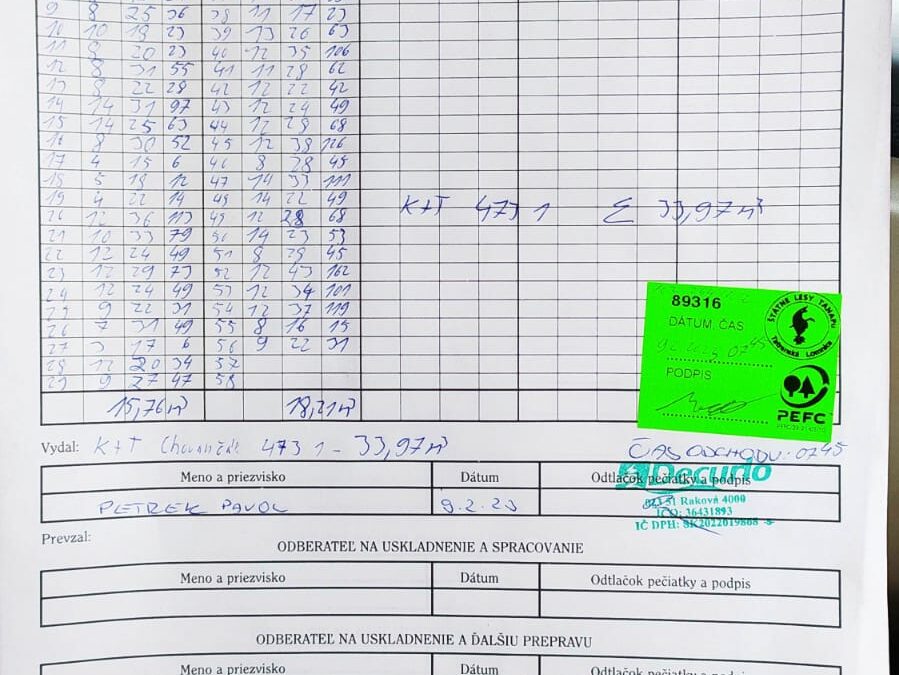 9 8 25 36 38 11 17 23
10 10 19 23 39 13 26 63
11 8 20 23 40 12 35 106
12 8 31 55 41 11 28 62
13 8 22 28 42 12 22 42
14 14 31 97 43 12 24 49
15 14 25 63 44 12 28 68
16 8 30 52 45 12 38 126
17 4 15 6 46 8 28 45
18 5 18 12 47 14 33 111
19 4 22 14 48 14 22 49
20 12 36 113 49 12 28 68
K+T 473 1 Σ 33,97 m³
21 10 33 79 50 14 23 53
22 12 24 49 51 8 28 45
23 12 29 73 52 12 43 162
24 12 24 49 53 12 34 101
25 9 22 31 54 12 37 119
26 7 31 49 55 8 16 15
27 3 17 6 56 9 22 31
28 12 20 34 57
29 9 27 47 58
15,76 m³ 18,21 m³
89316
DÁTUM, ČAS
0745
PODPIS
ŠTÁTNE LESY TANAPU
Tatranská Lomnica
PEFC
Vydal: K+T 473 1 - 33,97 m³
ČAS ODCHODU: 0745
Meno a priezvisko Dátum Odtlačok pečiatky a podpis
PETREK PAVOL 9.2.23
Decudo
023 51 Raková 4000
IČO: 36431893
IČ DPH: SK2022019868
Prevzal:
ODBERATEĽ NA USKLADNENIE A SPRACOVANIE
Meno a priezvisko Dátum Odtlačok pečiatky a podpis
ODBERATEĽ NA USKLADNENIE A ĎALŠIU PREPRAVU
Meno a priezvisko Dátum Odtlačok pečiatky a podpis